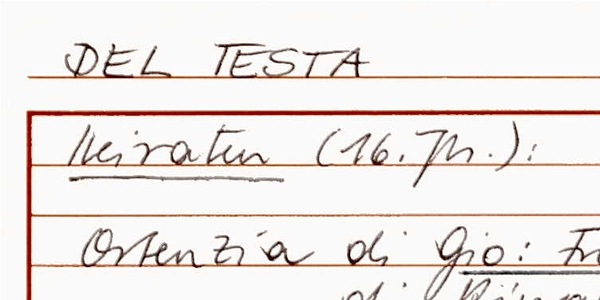 DEL TESTA
Heiraten (16. Jh.):
Ortenzia di Gio: Fr
di